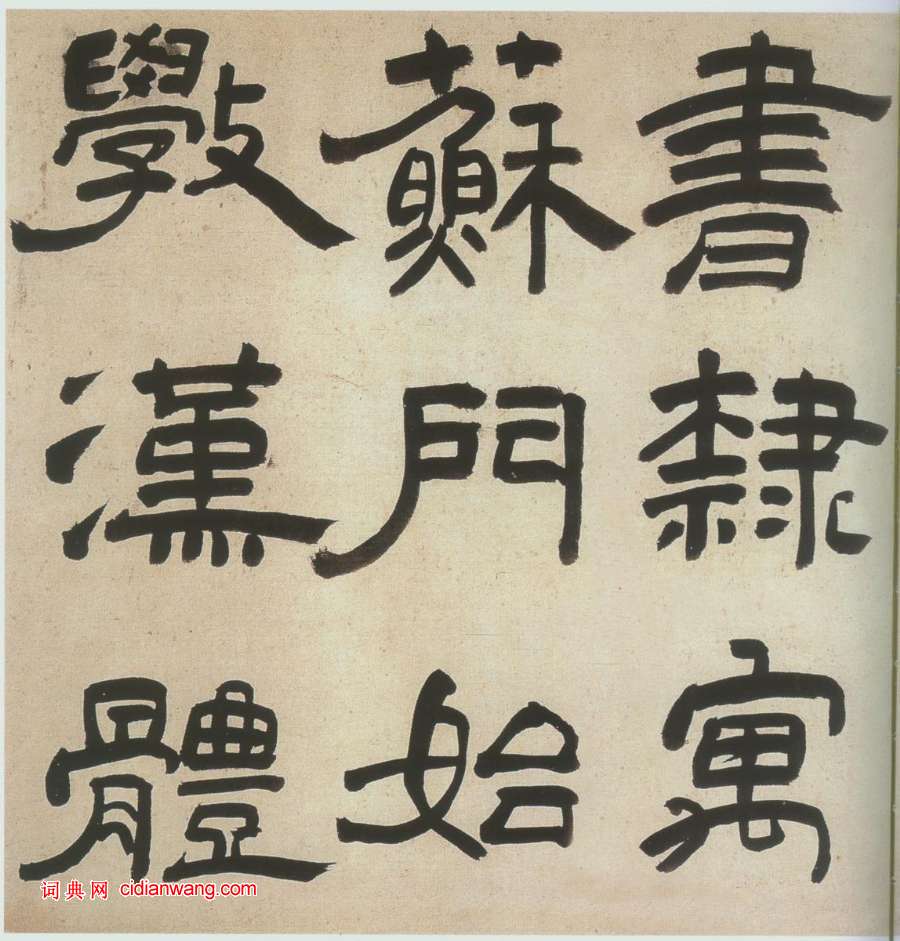 書隸寓
蘇門始
斆漢體
词典网 cidianwang.com